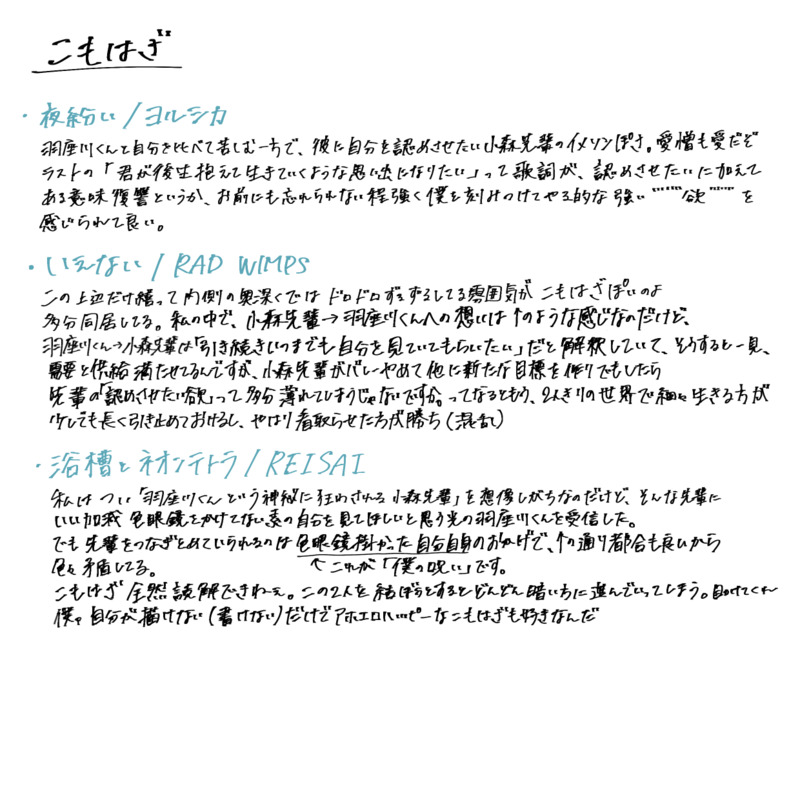 こもはぎ
・夜紛い/ヨルシカ
羽座川くんと自分を比べて苦しむ一方で、彼に自分を認めさせたい小森先輩のイメソンぽさ。愛憎も愛だぞ
ラストの「君が後生抱えて生きていくような思い出になりたい」って歌詞が、認めさせたいに加えて
ある意味復讐というか、お前にも忘れられない程強く僕を刻みつけてやる的な強い"""欲"""を
感じられて良い。
・いえない/RAD WIMPS
この上辺だけ繕って内側の奥深くではドロドロずるずるしてる雰囲気がこもはぎぽいのよ
多分同居してる。私の中で、小森先輩→羽座川くんへの想いは↑のような感じなのだけど、
羽座川くん→小森先輩は「引き続きいつまでも自分を見ていてもらいたい」だと解釈していて、そうすると一見、
需要と供給満たせてるんですが、小森先輩がバレーやめて他に新たな目標を作りでもしたら
先輩の「認めさせたい欲」って多分薄れてしまうじゃないですか。ってなるともう、2人きりの世界で細々生きる方が
少しでも長く引き止めておけるし、やはり看取らせた方が勝ち(混乱)
・浴槽とネオンテトラ/REISAI
私はつい「羽座川くんという神秘に狂わされる小森先輩」を想像しがちなのだけど、そんな先輩に
いい加減色眼鏡をかけてない素の自分を見てほしいと思う光の羽座川くんを受信した。
でも先輩をつなぎとめていられるのは色眼鏡掛かった自分自身のおかげで、↑の通り都合も良いから
色々矛盾してる。
↑これが「僕の呪い」です。
こもはぎ全然読解できねぇ。この2人を結ぼうとするとどんどん暗い方に進んでいってしまう。助けてくれ
僕。自分が描けない(書けない)だけでアホエロハッピーなこもはぎも好きなんだ